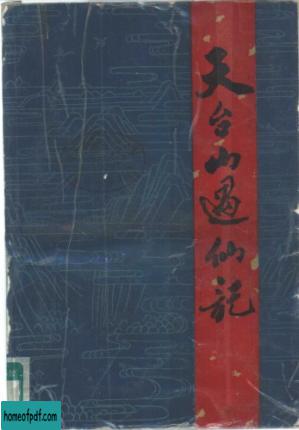 天台山遇仙记
homeofpdf.com